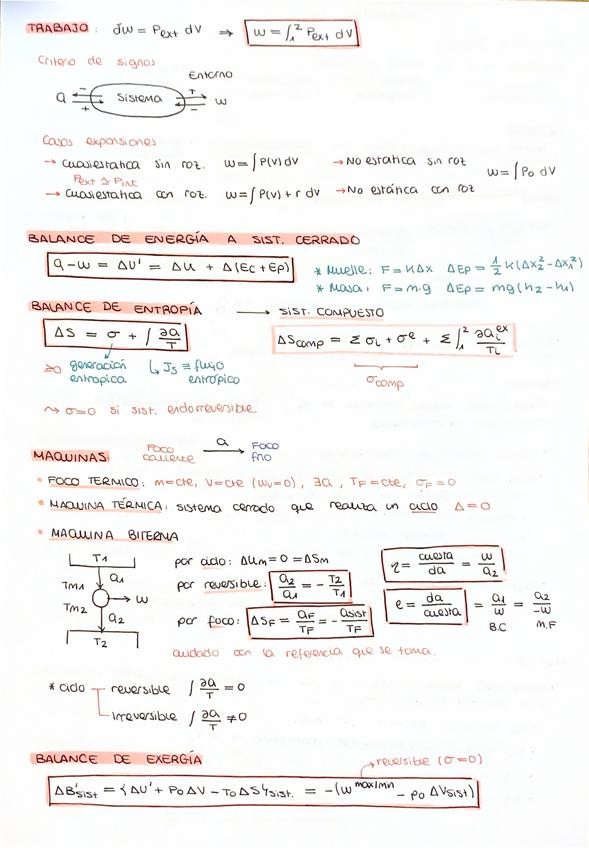 TRABAJO: δW = Pext dV ⇒ W = ∫₁² Pext dV
Criterio de signos
Entorno
Q - + Sistema + - W
Casos expansiones
→ Cuasiestatica sin roz. W = ∫ P(V) dV → No estatica sin roz W = ∫ P0 dV
Pext ≃ Pint
→ Cuasiestatica con roz. W = ∫ P(V) + r dV → No estática con roz
BALANCE DE ENERGÍA A SIST. CERRADO
Q - W = ΔU' = ΔU + Δ(Ec + Ep)
* Muelle: F = KΔx ΔEp = 1/2 k(Δx₂² - Δx₁²)
* Masa: F = m·g ΔEp = mg(h2 - h1)
BALANCE DE ENTROPÍA → SIST. COMPUESTO
ΔS = σ + ∫ ∂Q/T
ΔScomp = Σσi + σᵉ + Σ∫₁² ∂Qiᵉˣ/Ti
≥0 generación entropica
↳ Js ≡ flujo entrópico
σcomp
⇝ σ=0 si sist. endorreversible.
MAQUINAS
FOCO caliente Q → FOCO frío
• FOCO TERMICO: m=cte, V=cte (Wv=0), ∃Q, TF=cte, σF=0
• MAQUINA TÉRMICA: sistema cerrado que realiza un ciclo Δ=0
• MAQUINA BITERMA
T1
Q1
TM1
→ W
TM2
Q2
T2
por ciclo: ΔUm = 0 = ΔSm
por reversible: Q2/Q1 = - T2/T1
por foco: ΔSF = QF/TF = - Qsist/TF
η = cuesta/da = W/Q2
e = da/cuesta = Q1/W = Q2/-W
B.C M.F
cuidado con la referencia que se toma.
* ciclo
reversible ∫ ∂Q/T = 0
Irreversible ∫ ∂Q/T ≠ 0
BALANCE DE EXERGÍA
reversible (σ=0)
ΔB'sist = {ΔU' + P0 ΔV - T0 ΔS}sist. = -(W max/min - p0 ΔVsist)